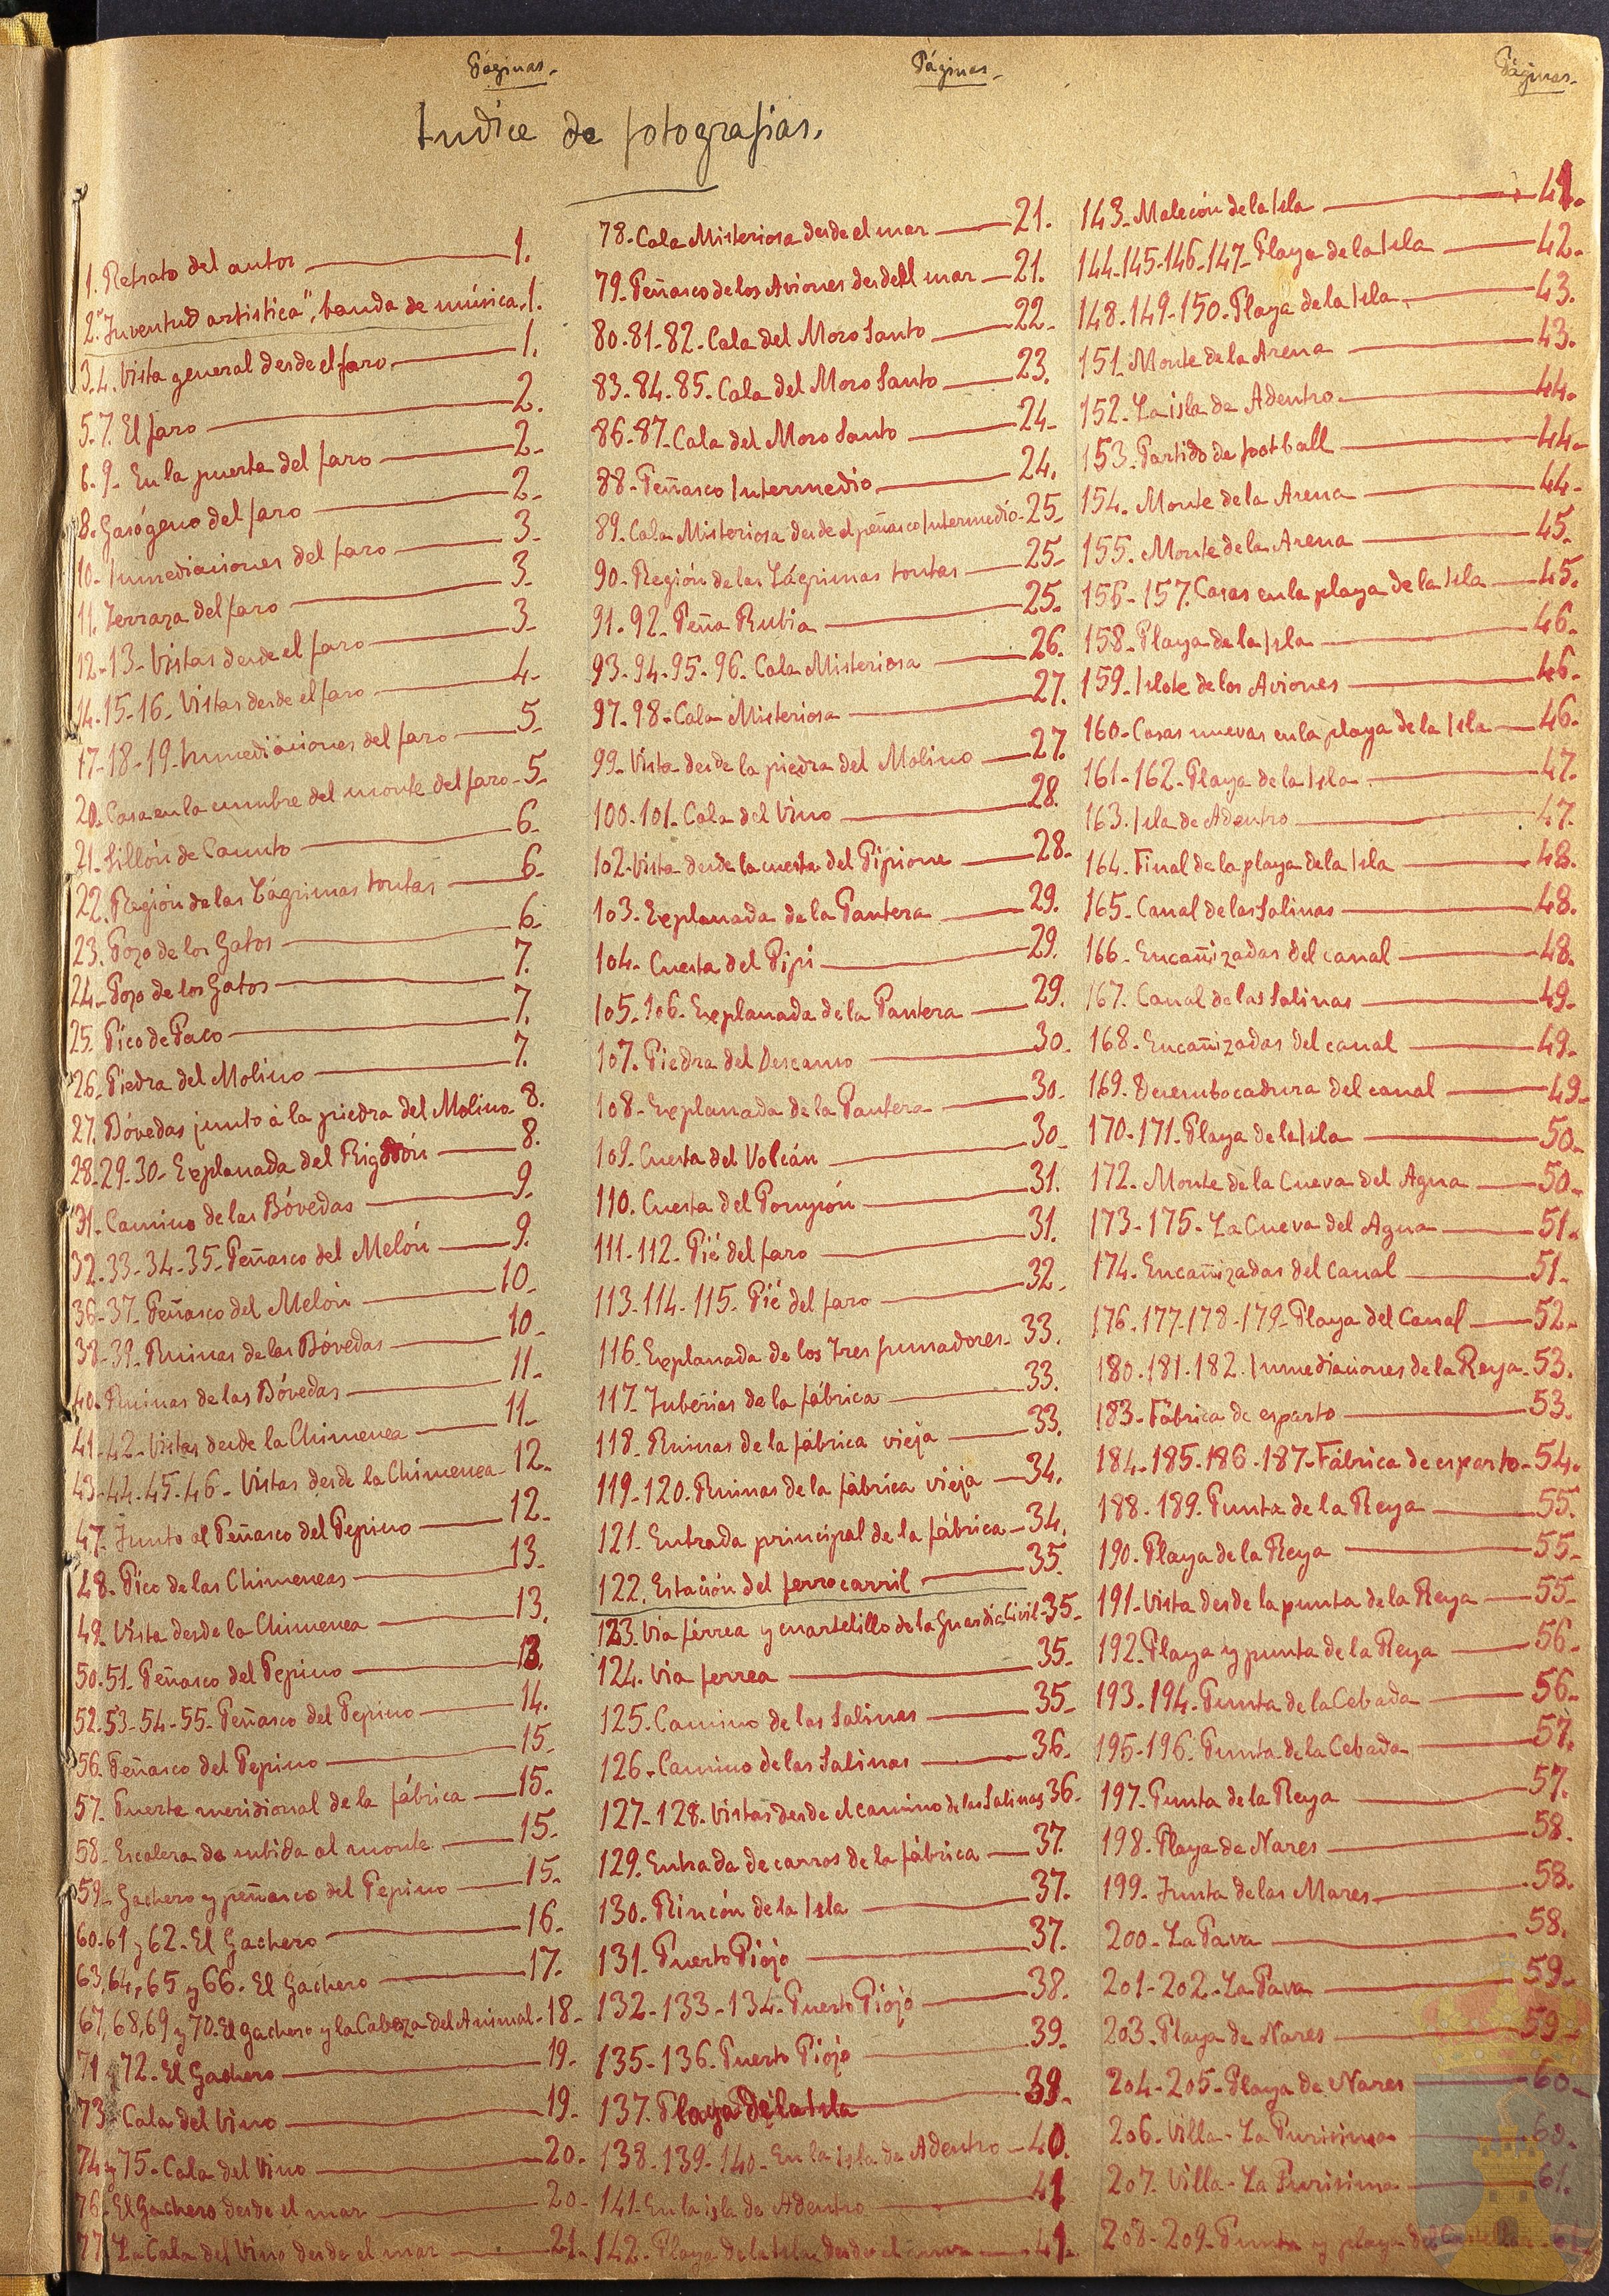 Páginas.
Páginas.
Páginas.
Indice de fotografias.
1. Retrato del autor — 1.
2. "Juventud artistica", banda de música. 1.
3.4. Vista general desde el faro — 1.
5.7. El faro — 2.
6.9- En la puerta del faro — 2-
8. Gasógeno del faro — 2-
10- Inmediaciones del faro — 3-
11. Terraza del faro — 3-
12-13- Vistas desde el faro — 3-
14-15-16- Vistas desde el faro — 4-
17-18-19- Inmediaciones del faro — 5-
20- Casa en la cumbre del monte del faro - 5-
21- Sillón de Canuto — 6-
22. Región de las Lágrimas tontas — 6-
23. Pozo de los Gatos — 6-
24- Pozo de los Gatos — 7.
25. Pico de Paco — 7.
26. Piedra del Molino — 7.
27. Bóvedas junto á la piedra del Molino- 8.
28-29-30- Explanada del Rigodón — 8.
31- Camino de las Bóvedas — 9-
32-33-34-35- Peñasco del Melón — 9.
36-37. Peñasco del Melón — 10-
38-39. Ruinas de las Bóvedas — 10-
40. Ruinas de las Bóvedas — 11-
41-42- Vistas desde la Chimenea — 11-
43-44-45-46- Vistas desde la Chimenea- 12-
47. Junto al Peñasco del Pepino — 12-
48. Pico de las Chimeneas — 13-
49. Vista desde la Chimenea — 13.
50-51. Peñasco del Pepino — 13.
52-53-54-55- Peñasco del Pepino — 14.
56. Peñasco del Pepino — 15-
57. Puerta meridional de la fábrica — 15-
58- Escalera de subida al monte — 15-
59- Gachero y peñasco del Pepino — 15-
60-61 y 62- El Gachero — 16-
63, 64, 65 y 66- El Gachero — 17-
67, 68, 69 y 70- El Gachero y la Cabeza del Animal- 18-
71 y 72. El Gachero — 19-
73 Cala del Vino — 19-
74 y 75- Cala del Vino — 20-
76- El Gachero desde el mar — 20-
77 La Cala del Vino desde el mar — 21-
78- Cala Misteriosa desde el mar — 21.
79- Peñasco de los Aviones desde el mar — 21.
80-81-82- Cala del Moro Santo — 22-
83-84-85- Cala del Moro Santo — 23.
86-87- Cala del Moro Santo — 24-
88- Peñasco Intermedio — 24.
89- Cala Misteriosa desde el peñasco Intermedio- 25-
90- Región de las Lágrimas tontas — 25-
91-92- Peña Rubia — 25-
93-94-95-96. Cala Misteriosa — 26.
97-98- Cala Misteriosa — 27.
99- Vista desde la piedra del Molino — 27.
100-101- Cala del Vino — 28.
102- Vista desde la cuesta del Pipione — 28-
103- Explanada de la Pantera — 29.
104- Cuesta del Pipi — 29.
105-106- Explanada de la Pantera — 29.
107. Piedra del Descanso — 30-
108- Explanada de la Pantera — 30-
109. Cuesta del Volcán — 30-
110. Cuesta del — 31.
111-112- Pié del faro — 31.
113-114-115. Pié del faro — 32-
116. Explanada de los Tres fumadores- 33.
117. Tuberías de la fábrica — 33.
118- Ruinas de la fábrica vieja — 33.
119-120. Ruinas de la fábrica vieja — 34.
121. Entrada principal de la fábrica — 34.
122. Estación del ferrocarril — 35.
123. Via férrea y cuartelillo de la Guardia Civil- 35-
124. Via ferrea — 35-
125. Camino de las Salinas — 35-
126. Camino de las Salinas — 36-
127-128- Vistas desde el camino de las Salinas 36-
129. Entrada de carros de la fábrica — 37.
130. Rincón de la Isla — 37.
131- Puerto Piojo — 37.
132-133-134- Puerto Piojo — 38.
135-136. Puerto Piojo — 39.
137. Playa de la Isla — 39-
138-139-140- En la isla de Adentro — 40.
141- En la isla de Adentro — 41
142- Playa de la Isla desde el mar — 41.
143- Malecón de la Isla — 41.
144-145-146-147- Playa de la Isla — 42-
148-149-150- Playa de la Isla — 43.
151. Monte de la Arena — 43.
152- La isla de Adentro — 44.
153- Partido de football — 44-
154. Monte de la Arena — 44-
155. Monte de la Arena — 45-
156-157. Casas en la playa de la Isla — 45.
158- Playa de la Isla — 46-
159. Islote de los Aviones — 46-
160- Casas nuevas en la playa de la Isla — 46-
161-162- Playa de la Isla — 47.
163. Isla de Adentro — 47.
164. Final de la playa de la Isla — 48.
165- Canal de las Salinas — 48.
166- Encañizadas del canal — 48.
167. Canal de las Salinas — 49-
168- Encañizadas del canal — 49-
169. Desembocadura del canal — 49-
170-171. Playa de la Isla — 50-
172. Monte de la Cueva del Agua — 50-
173-175- La Cueva del Agua — 51-
174. Encañizadas del Canal — 51-
176-177-178-179- Playa del Canal — 52-
180-181-182. Inmediaciones de la Reya- 53.
183- Fábrica de esparto — 53.
184-185-186-187- Fábrica de esparto- 54.
188-189. Punta de la Reya — 55.
190. Playa de la Reya — 55-
191- Vista desde la punta de la Reya — 55-
192. Playa y punta de la Reya — 56-
193-194. Punta de la Cebada — 56-
195-196. Punta de la Cebada — 57.
197- Punta de la Reya — 57.
198- Playa de Nares — 58.
199- Junta de los Mares — 58.
200- La Pava — 58.
201-202- La Pava — 59-
203- Playa de Nares — 59-
204-205- Playa de Nares — 60-
206. Villa- La Purisima — 60-
207. Villa- La Purisima — 61.
208-209- Punta y playa del